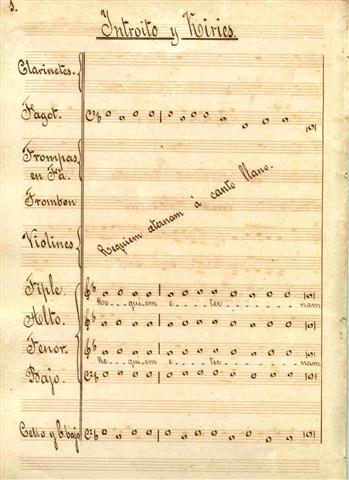 3.
Introito y Kiries.
Clarinetes.
Fagot.
Trompas
en Fa.
Trombon
Violines
Requiem aternam á canto llano.
Tiple
Re - - - qui - em e - - - ter - - - - nam
Alto.
Tenor.
Re - - - qui - em e - - - ter - - - - nam
Bajo.
Cello y C. bajo